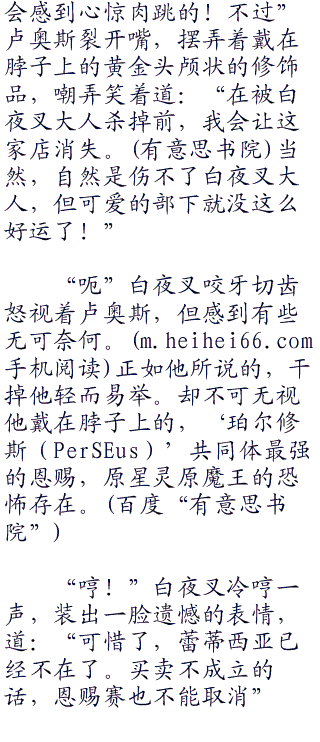 会感到心惊肉跳的！不过”
卢奥斯裂开嘴，摆弄着戴在
脖子上的黄金头颅状的修饰
品，嘲弄笑着道：“在被白
夜叉大人杀掉前，我会让这
家店消失。(有意思书院)当
然，自然是伤不了白夜叉大
人，但可爱的部下就没这么
好运了！”
“呃”白夜叉咬牙切齿
怒视着卢奥斯，但感到有些
无可奈何。(m.heihei66.com
手机阅读)正如他所说的，干
掉他轻而易举。却不可无视
他戴在脖子上的，‘珀尔修
斯（PerSEus）’共同体最强
的恩赐，原星灵原魔王的恐
怖存在。(百度“有意思书
院”)
“哼！”白夜叉冷哼一
声，装出一脸遗憾的表情，
道：“可惜了，蕾蒂西亚已
经不在了。买卖不成立的
话，恩赐赛也不能取消”